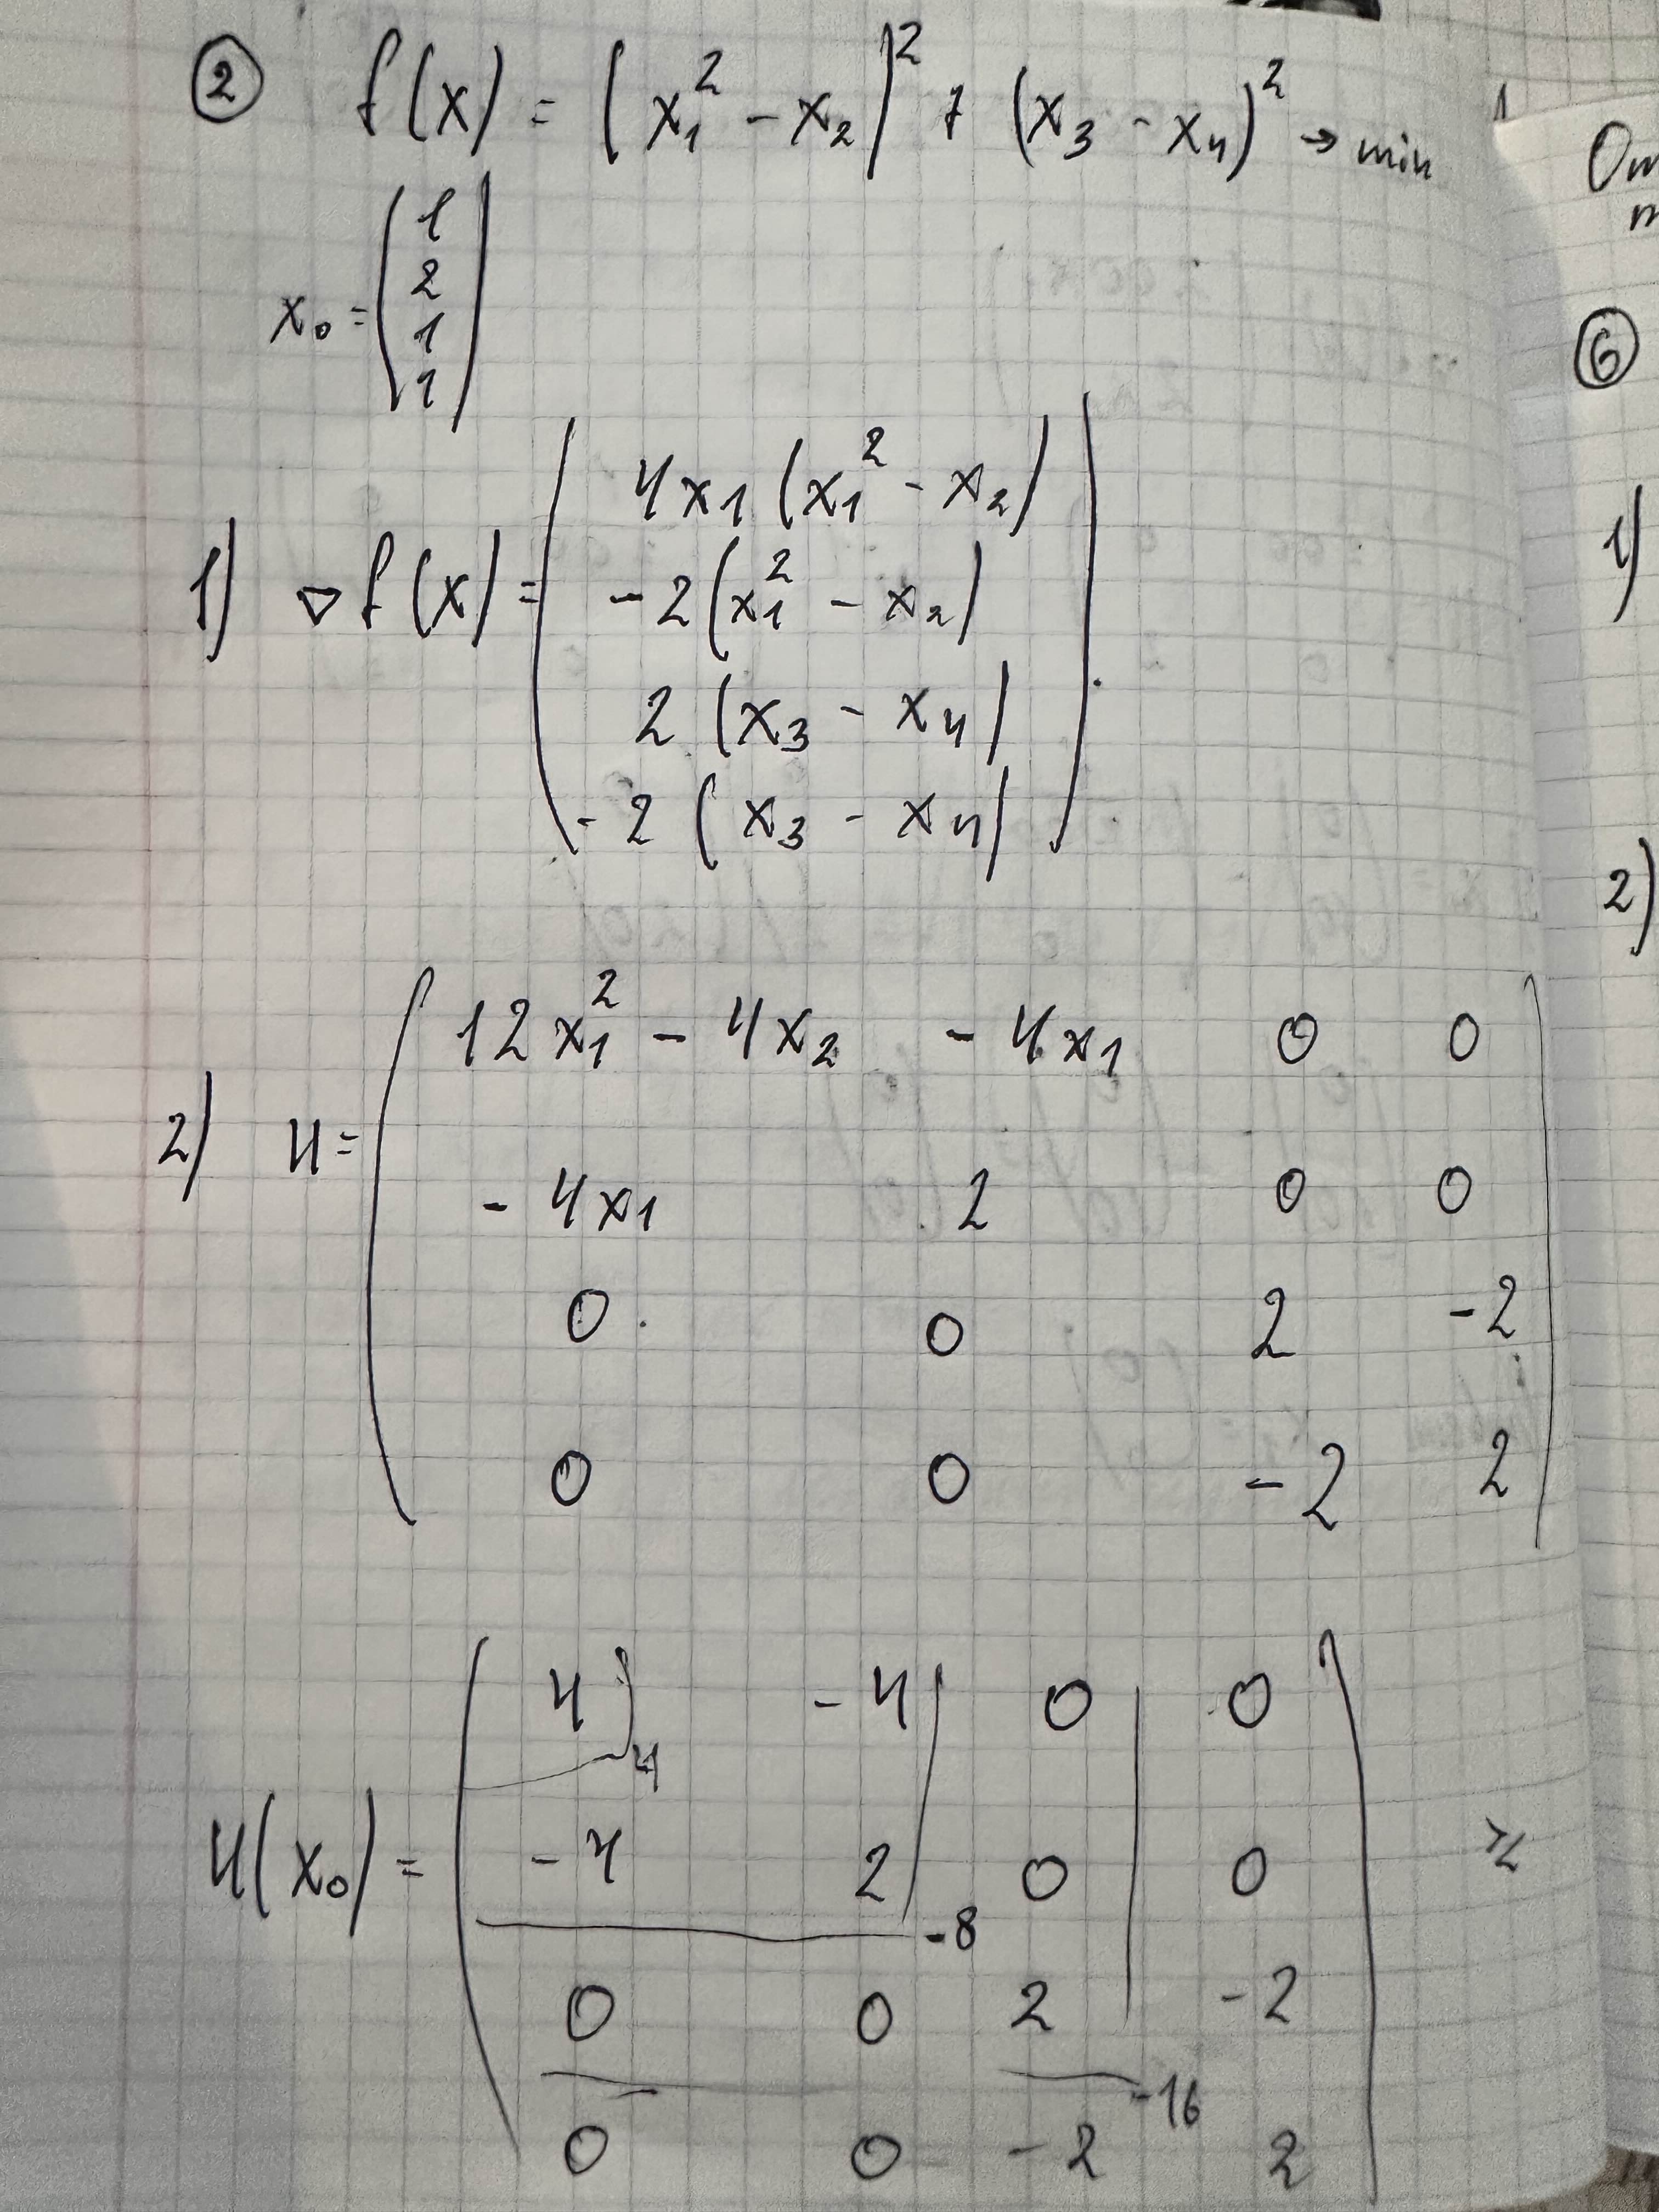 ② f(x) = (x₁² - x₂)² + (x₃ - x₄)² → min
x₀ = (1
2
1
1)
1) ∇f(x) = (4x₁(x₁² - x₂)
-2(x₁² - x₂)
2(x₃ - x₄)
-2(x₃ - x₄))
2) H = (12x₁² - 4x₂ -4x₁ 0 0
-4x₁ 2 0 0
0 0 2 -2
0 0 -2 2)
H(x₀) = (4 -4 0 0
4
-4 2 0 0
-8
0 0 2 -2
-16
0 0 -2 2)
⑥
1)
2)